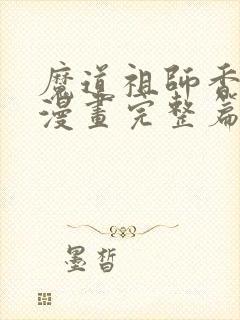 魔道祖師香
漫畫完整篇
墨晳